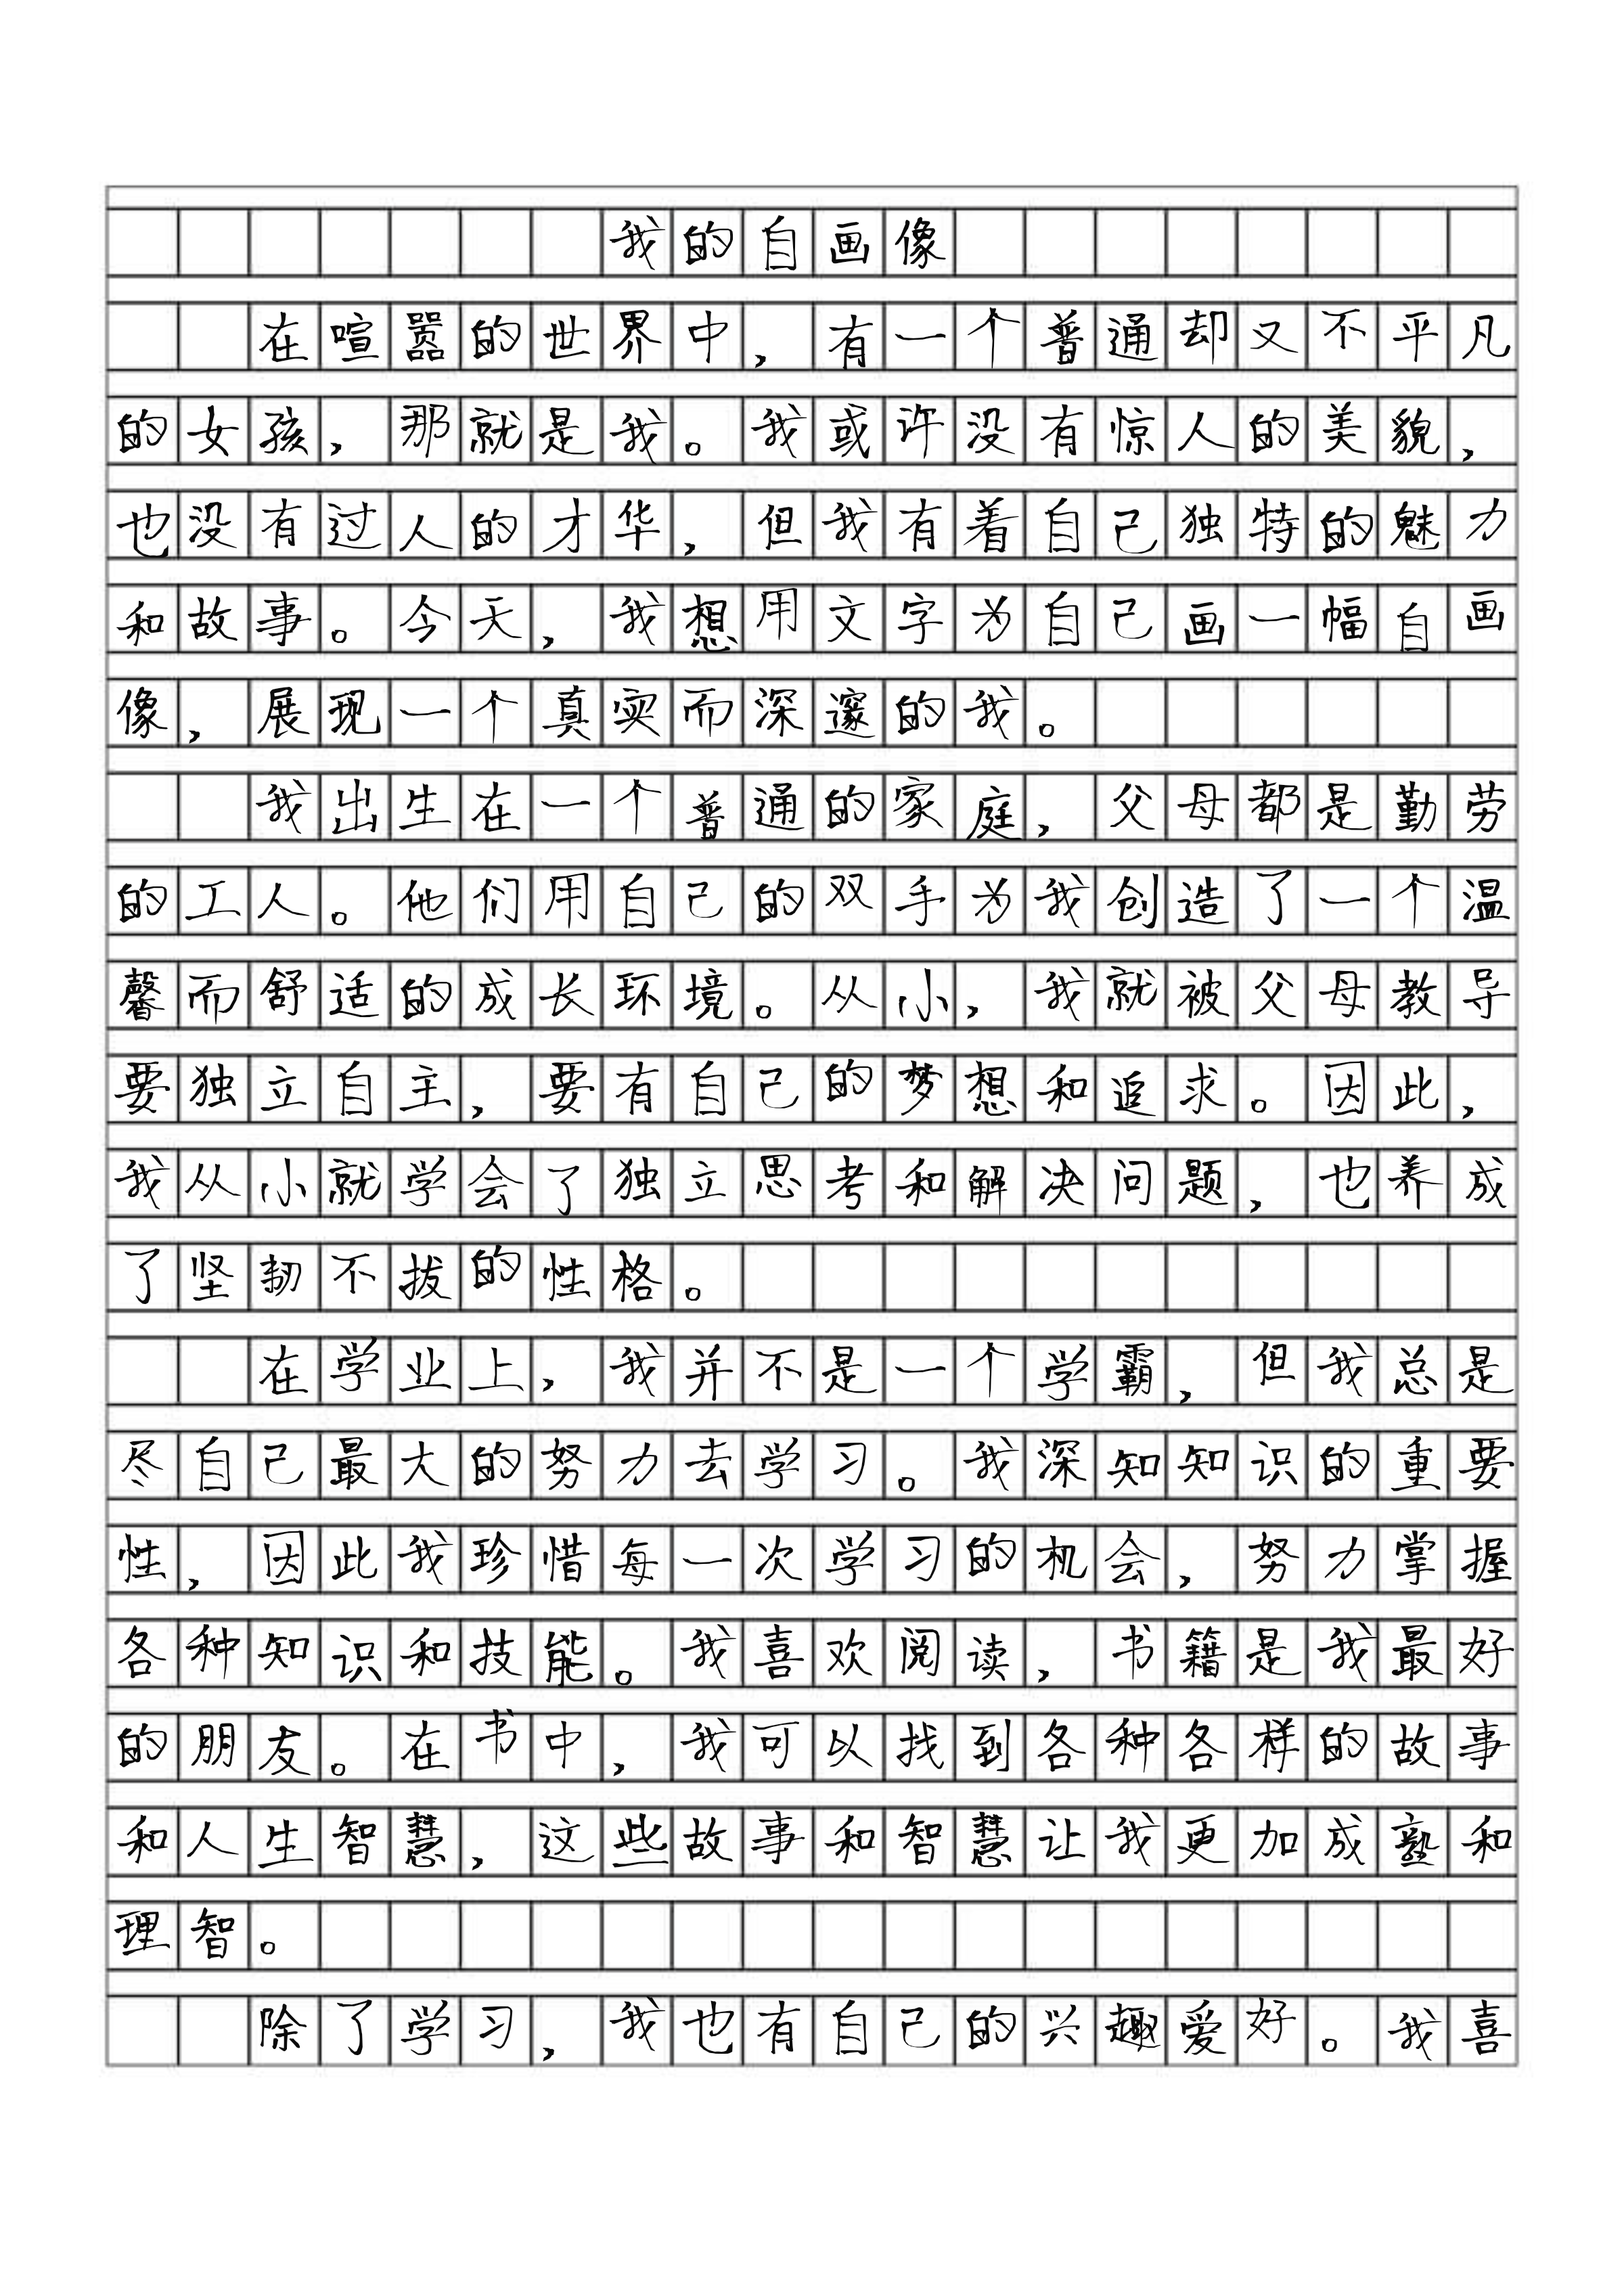 我的自画像
在喧嚣的世界中，有一个普通却又不平凡
的女孩，那就是我。我或许没有惊人的美貌，
也没有过人的才华，但我有着自己独特的魅力
和故事。今天，我想用文字为自己画一幅自画
像，展现一个真实而深邃的我。
我出生在一个普通的家庭，父母都是勤劳
的工人。他们用自己的双手为我创造了一个温
馨而舒适的成长环境。从小，我就被父母教导
要独立自主，要有自己的梦想和追求。因此，
我从小就学会了独立思考和解决问题，也养成
了坚韧不拔的性格。
在学业上，我并不是一个学霸，但我总是
尽自己最大的努力去学习。我深知知识的重要
性，因此我珍惜每一次学习的机会，努力掌握
各种知识和技能。我喜欢阅读，书籍是我最好
的朋友。在书中，我可以找到各种各样的故事
和人生智慧，这些故事和智慧让我更加成熟和
理智。
除了学习，我也有自己的兴趣爱好。我喜